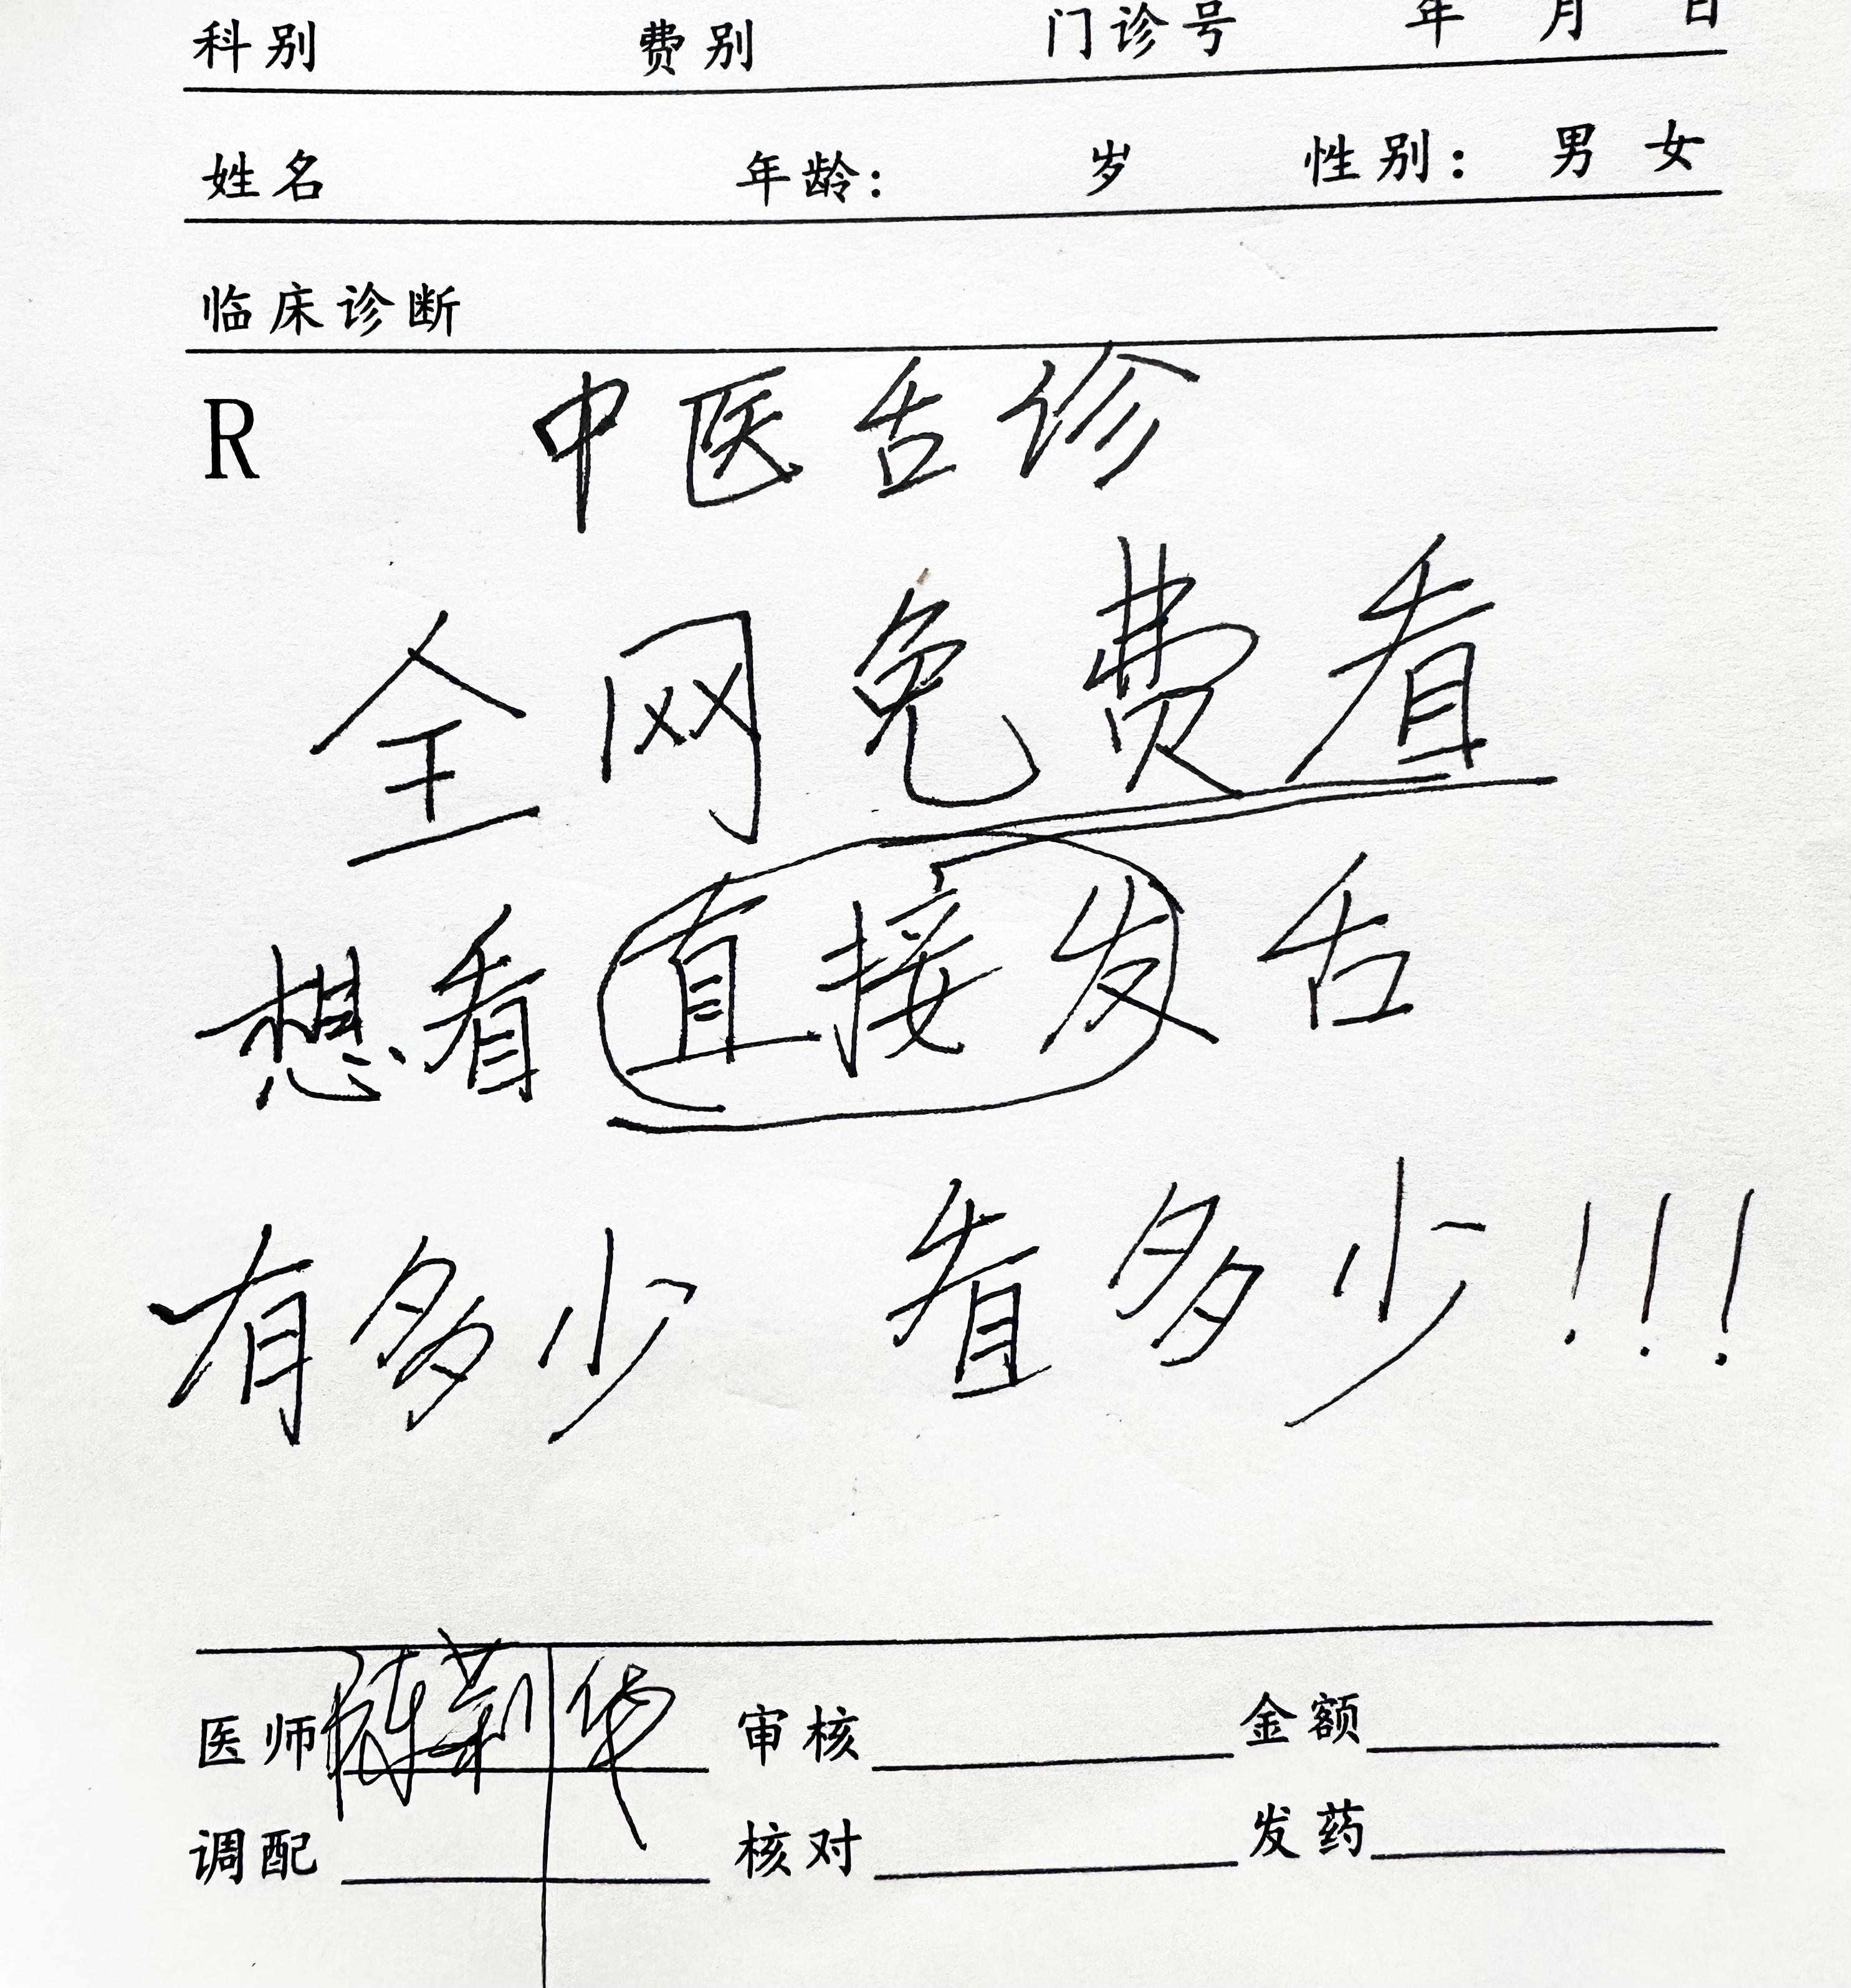 科别 费别 门诊号 年 月 日
姓名 年龄： 岁 性别： 男 女
临床诊断
R 中医舌诊
全网免费看
想看直接发舌
有多少 看多少!!!
医师 陈莉华 审核 金额
调配 核对 发药